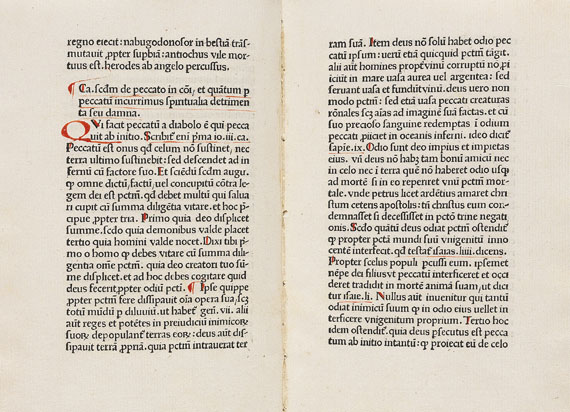 regno eiecit: nabugodonosor in bestiā trās-
mutauit ꝓpter supbiā: antiochus vile mor-
tuus est. herodes ab angelo percussus.
¶ Ca. scdm de peccato in cōi, et quātum p
peccatū incurrimus spiritualia detrimen
ta seu damna.
QVi facit peccatū a diabolo ē qui pecca
uit ab initio. Scribit̄ eni p̄ma io. iii. ca.
Peccatū est onus qd celum non sustinet, nec
terra ultimo sustinebit: sed descendet ad in
fernū cū factore suo. Et sciēdū scdm augu.
ꝙ omne dictū, factū, uel concupitū cōtra le
gem dei est pctm̄. qd debet multū qui salua
ri cupit cū summa diligētia vitare. et hoc p̄-
cipue, ꝓpter tria. Primo quia deo displicet
summe. scdo quia demonibus valde placet
tertio quia homini valde nocet. Dixi tibi p̄-
mo o homo ꝙ debes vitare cū summa dili
gentia om̄e pctm̄. quia deo creatori tuo sū-
me displicet. et ad hoc debes cogitare quid
deus fecerit ꝓpter odiū pcti. ¶ Ipse quippe
ꝓpter pctm̄ fere dissipauit oīa opera sua, scꝫ
totū mūdū p diluuiū. ut habet̄ geñ. vii. alii
aūt reges et potētes in preiudiciū inimicoꝝ
suoꝝ depopulant̄ terras eoꝝ: deus aūt dis-
sipauit terrā ꝓpriā. quia pctm̄ intrauerat ter
ram suā. Item deus nō solū habet odio pec
catū ipsum: uerū quicquid pctm̄ tāgit.
alii aūt homines propť vinū corruptū nō ꝓ-
iiciunt in mare uasa aurea uel argentea: sed
seruant uasa et fundūt vinū. deus uero non
modo pctm̄: sed etiā uasa peccati creaturas
rōnales scꝫ aīas ad imaginē suā factas. et cū
suo precioso sanguine redemptas ī odium
peccati ꝓiiciet in oceanis inferni. ideo dicit̄
sapie. ix. Odio sunt deo impius et impietas
eius. vñ deus nō habꝫ tam bonū amicū nec
in celo nec ī terra quē nō haberet odio usqꝫ
ad mortē si in eo reperiret vnū pctm̄ mor-
tale. vnde petrus licet ardētius amaret chri
stum ceteris apostolis: tñ christus eum con-
demnasset si decessisset in pctō trine negati
onis. Scdo quātū deus odiat pctm̄ ostendit̄
ꝙ propter pctā mundi suū vnigenitū inno
centē interfecit. qd testat̄ isaias. liii. dicens.
Propter scelus populi pcussi eum. ipsemet
nēpe dei filius vt peccatū interficeret et occi
deret tradidit in mortē animā suam, ut dici
tur isaie. li. Nullus aūt inuenitur qui tantū
odiat inimicū suum ꝙ in odio eius uellet in
terficere vnigenitum proprium. Tertio hoc
idem ostendit̄. quia deus psecutus est pecca
tum ab initio intantū: ꝙ proiecit eū de celo